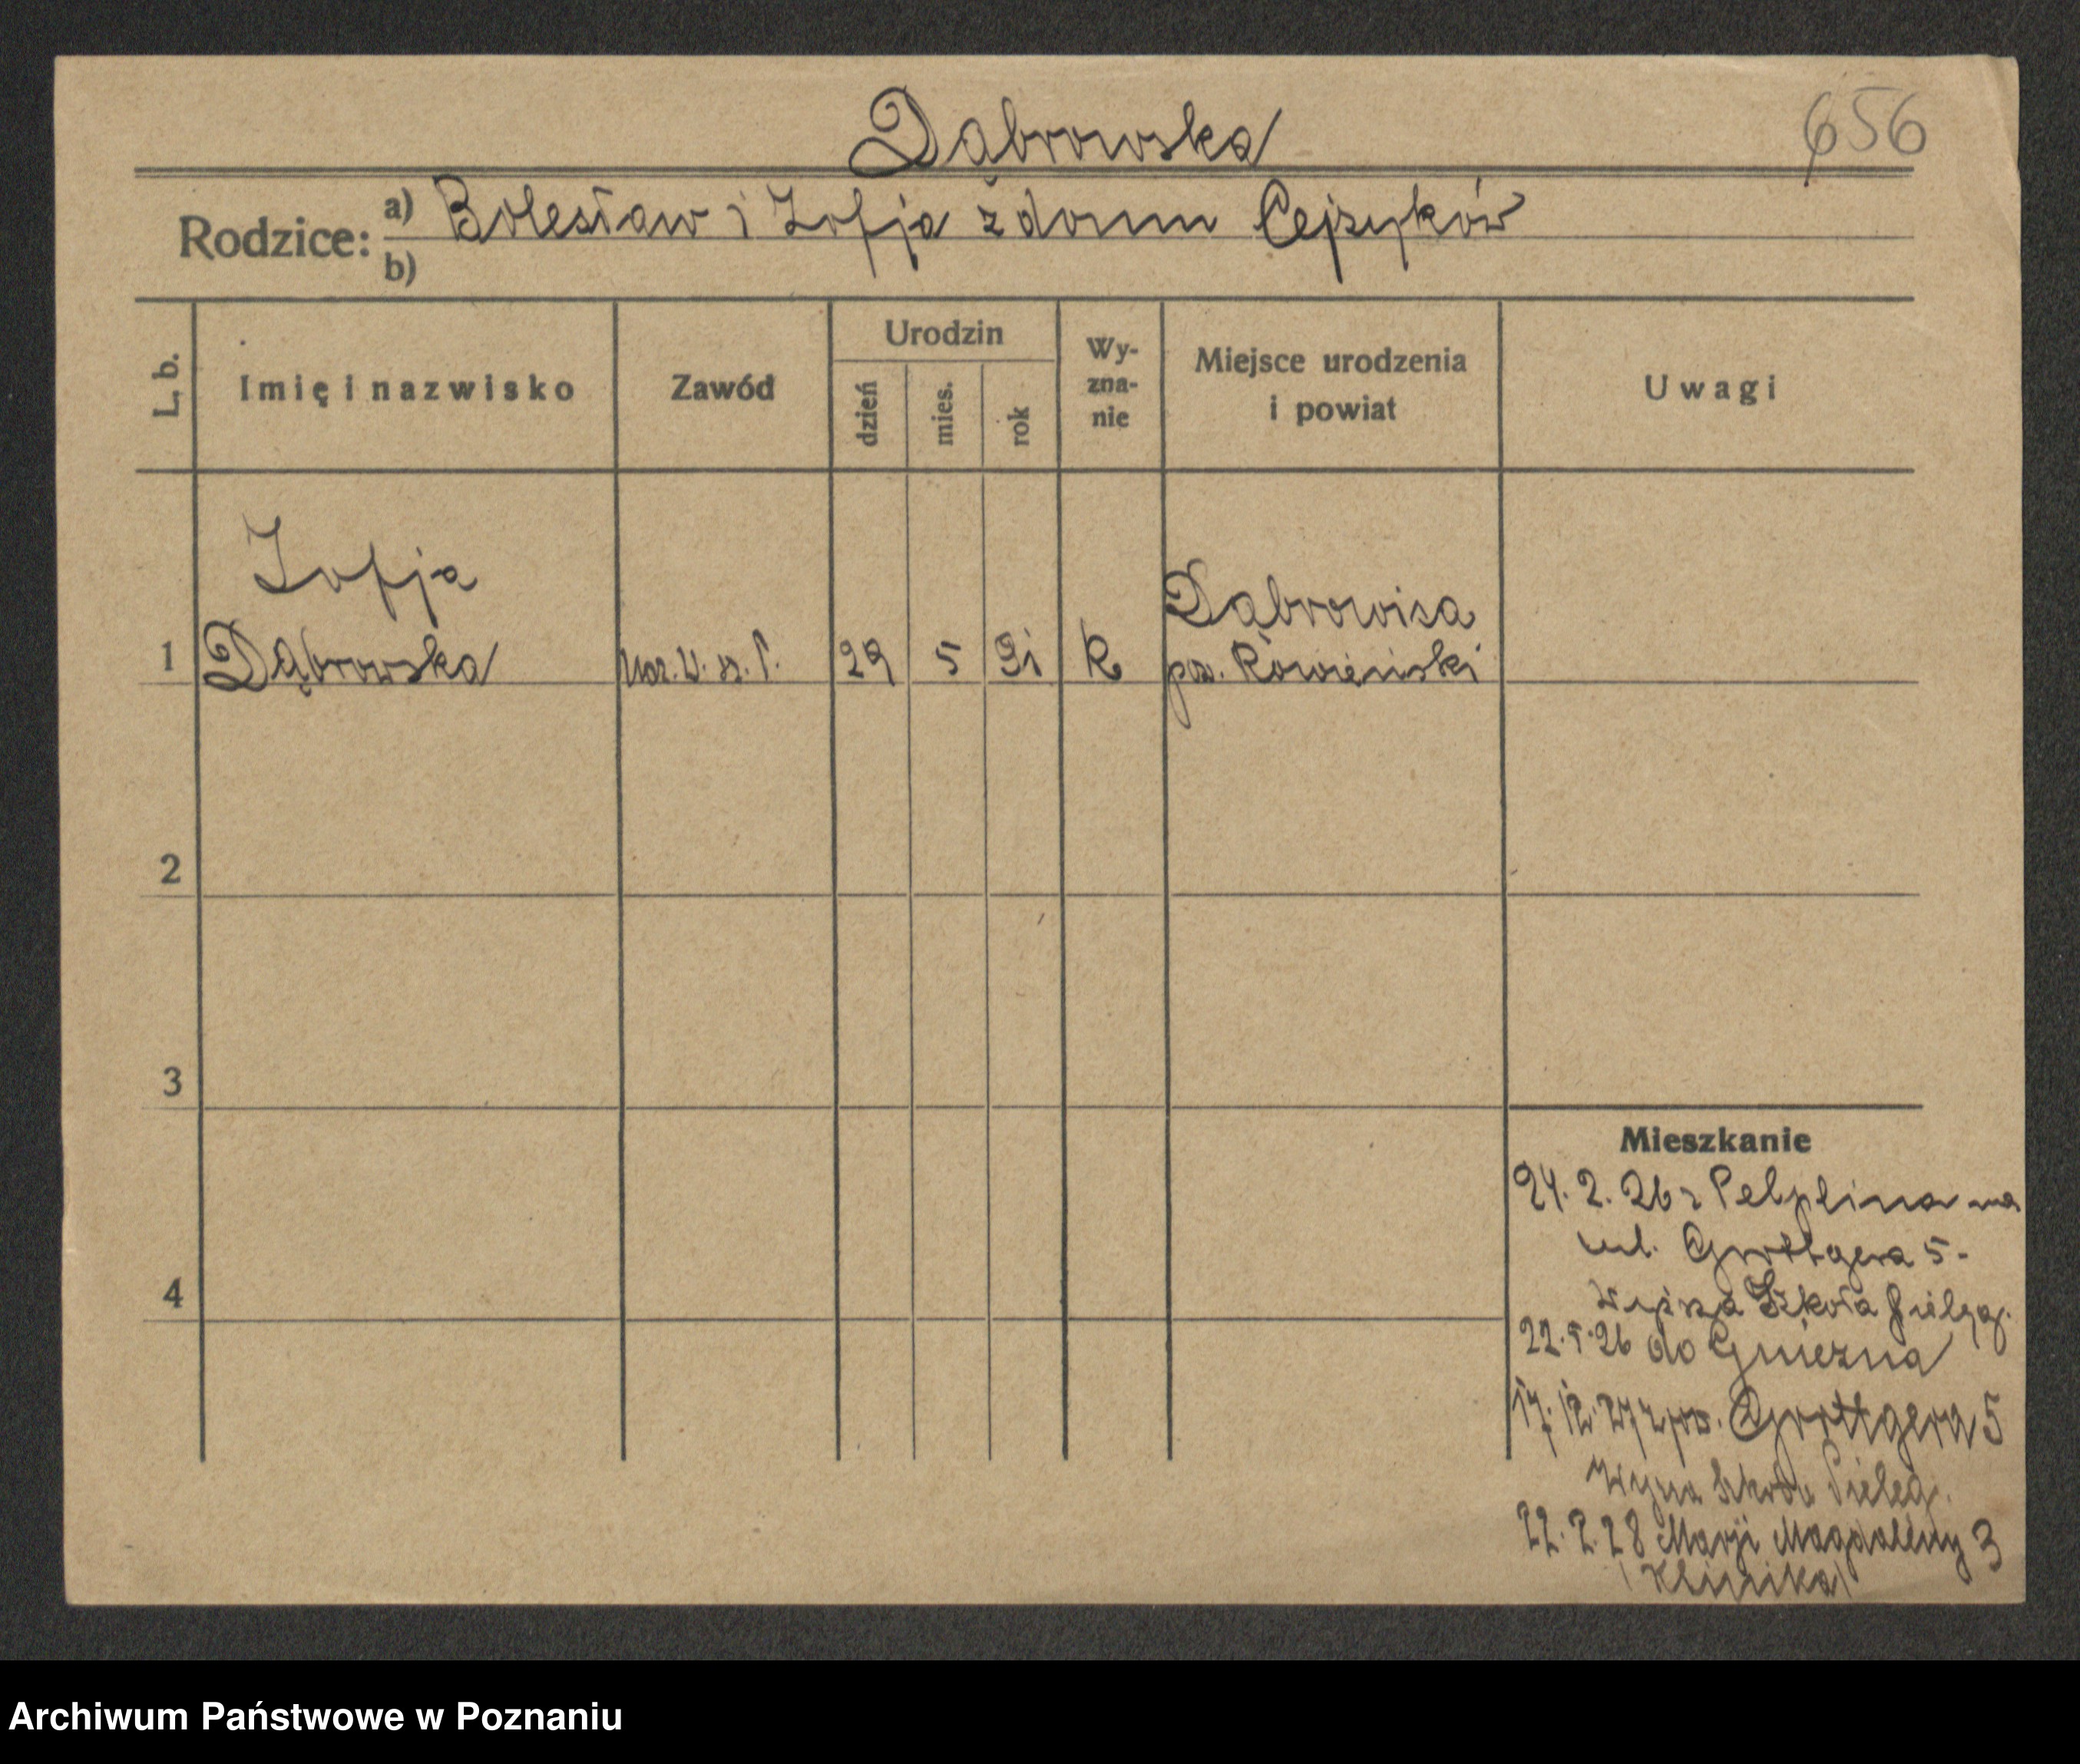 Dąbrowska
656
Rodzice:
a) Bolesław i Zofja z domu Cejzyków
b)
L. b.
Imię i nazwisko
Zawód
Urodzin
dzień
mies.
rok
Wy-
zna-
nie
Miejsce urodzenia
i powiat
Uwagi
Zofja
Dąbrowska
1
29
5
R
Dąbrowisa
pow. Rówieński
2
3
4
Mieszkanie
24. 2. 26 z Pelplina na
ul. Grottgera 5-
Wyższa Szkoła Pielęg.
22.5.26 do Gniezna
17.12.27 z pow. Grottgera 5
Szkoła Pieleg.
22.2.28 Marji Magdaleny 3
(Klinika)
Archiwum Państwowe w Poznaniu